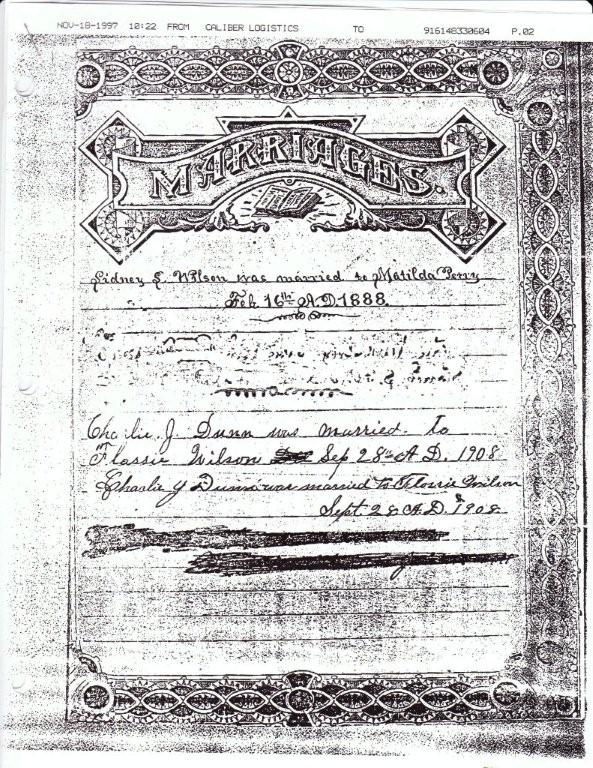 NOV-18-1997 10:22 FROM CALIBER LOGISTICS TO 916148330604 P.02
MARRIAGES.
Sidney E. Wilson was married to Matilda Perry
Feb. 16th A.D. 1888.
Charlie J. Dunn was married to
Flossie Wilson Sep 28th A.D. 1908
Charlie J Dunn was married to Flossie Wilson
Sept 28 A.D. 1908